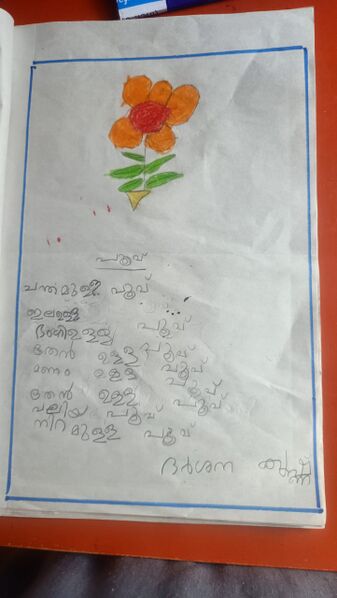 പൂവ്
ചന്തമുള്ള പൂവ്
ഭംഗിഉള്ള പൂവ്
തേൻ ഉള്ള പൂവ്
മണം ഉള്ള പൂവ്
തേൻ ഉള്ള പൂവ്
വലിയ പൂവ്
നിറമുള്ള പൂവ്
ദർശന